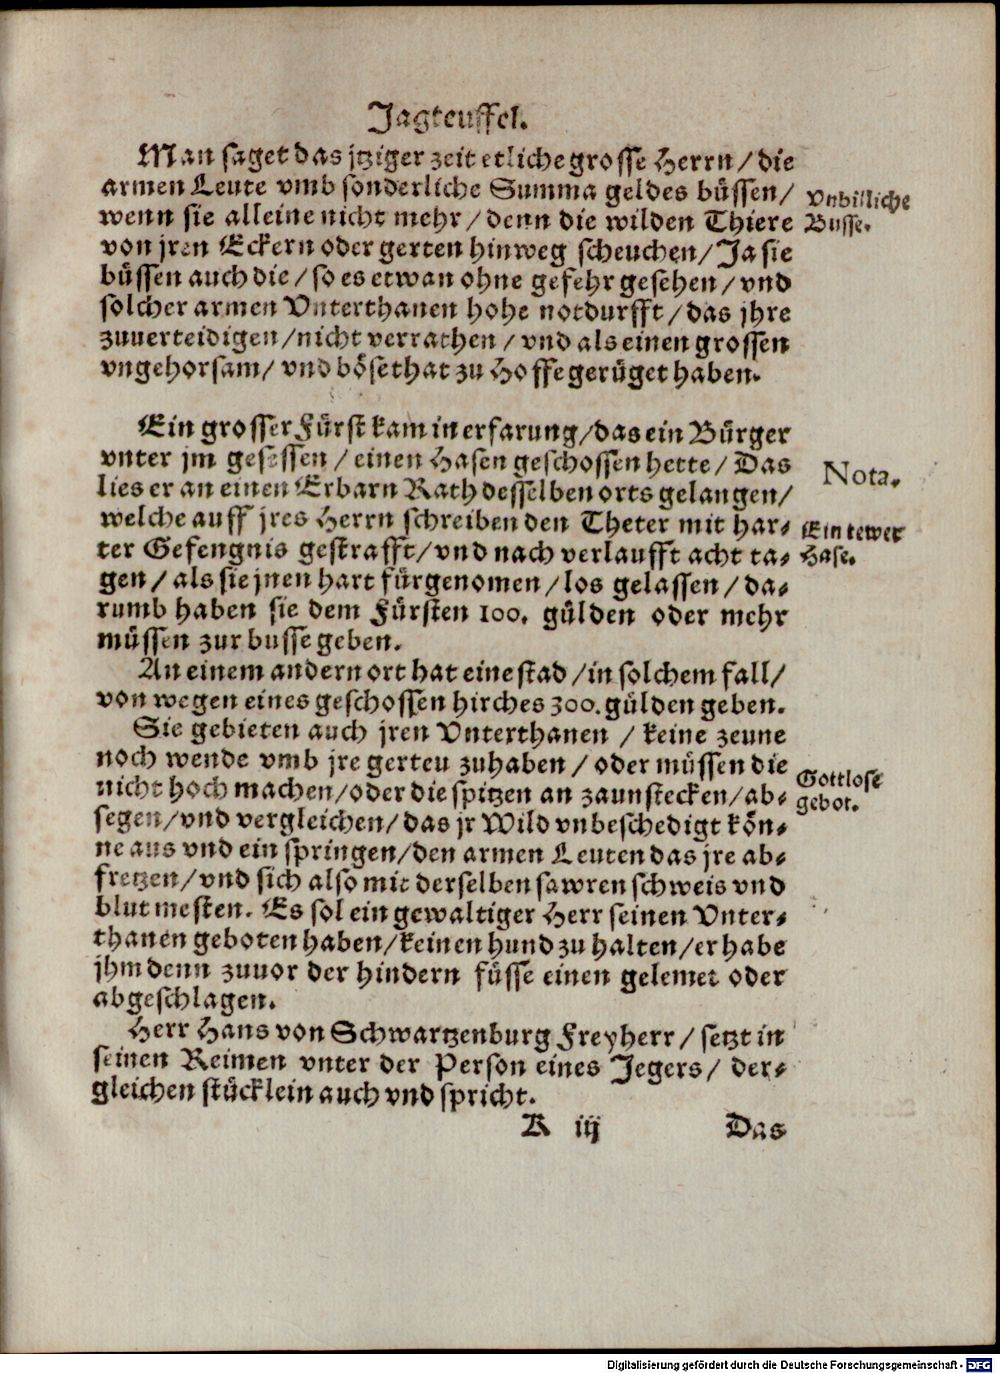 Jagteuffel.
Man saget das jtziger zeit etliche grosse Herrn / die
armen Leute vmb sonderliche Summa geldes büssen /
Vnbilliche
wenn sie alleine nicht mehr / denn die wilden Thiere
Busse.
von jren Eckern oder gerten hinweg scheuchen / Ja sie
büssen auch die / so es etwan ohne gefehr gesehen / vnd
solcher armen Vnterthanen hohe notdurfft / das jhre
zuuerteidigen / nicht verrathen / vnd als einen grossen
vngehorsam / vnd bösethat zu Hoffe gerüget haben.
Ein grosser Fürst kam in erfarung / das ein Bürger
vnter jm gesessen / einen Hasen geschossen hette / Das
Nota.
lies er an einen Erbarn Rath desselben orts gelangen /
welche auff jres Herrn schreiben den Theter mit har-
Ein tewer
ter Gefengnis gestrafft / vnd nach verlaufft acht ta-
Hase.
gen / als sie jnen hart fürgenomen / los gelassen / da-
rumb haben sie dem Fürsten 100. gülden oder mehr
müssen zur busse geben.
An einem andern ort hat eine stad / in solchem fall /
von wegen eines geschossen hirches 300. gülden geben.
Sie gebieten auch jren Vnterthanen / keine zeune
noch wende vmb jre gerten zuhaben / oder müssen die
Gottlose
nicht hoch machen / oder die spitzen an zaunstecken / ab-
gebot.
segen / vnd vergleichen / das jr Wild vnbeschedigt kön-
ne aus vnd ein springen / den armen Leuten das jre ab-
fretzen / vnd sich also mit derselben sawren schweis vnd
blut mesten. Es sol ein gewaltiger Herr seinen Vnter-
thanen geboten haben / keinen hund zu halten / er habe
jhm denn zuuor der hindern füsse einen gelemet oder
abgeschlagen.
Herr Hans von Schwartzenburg Freyherr / setzt in
seinen Reimen vnter der Person eines Jegers / der-
gleichen stücklein auch vnd spricht.
K iij Das
Digitalisierung gefördert durch die Deutsche Forschungsgemeinschaft - DFG